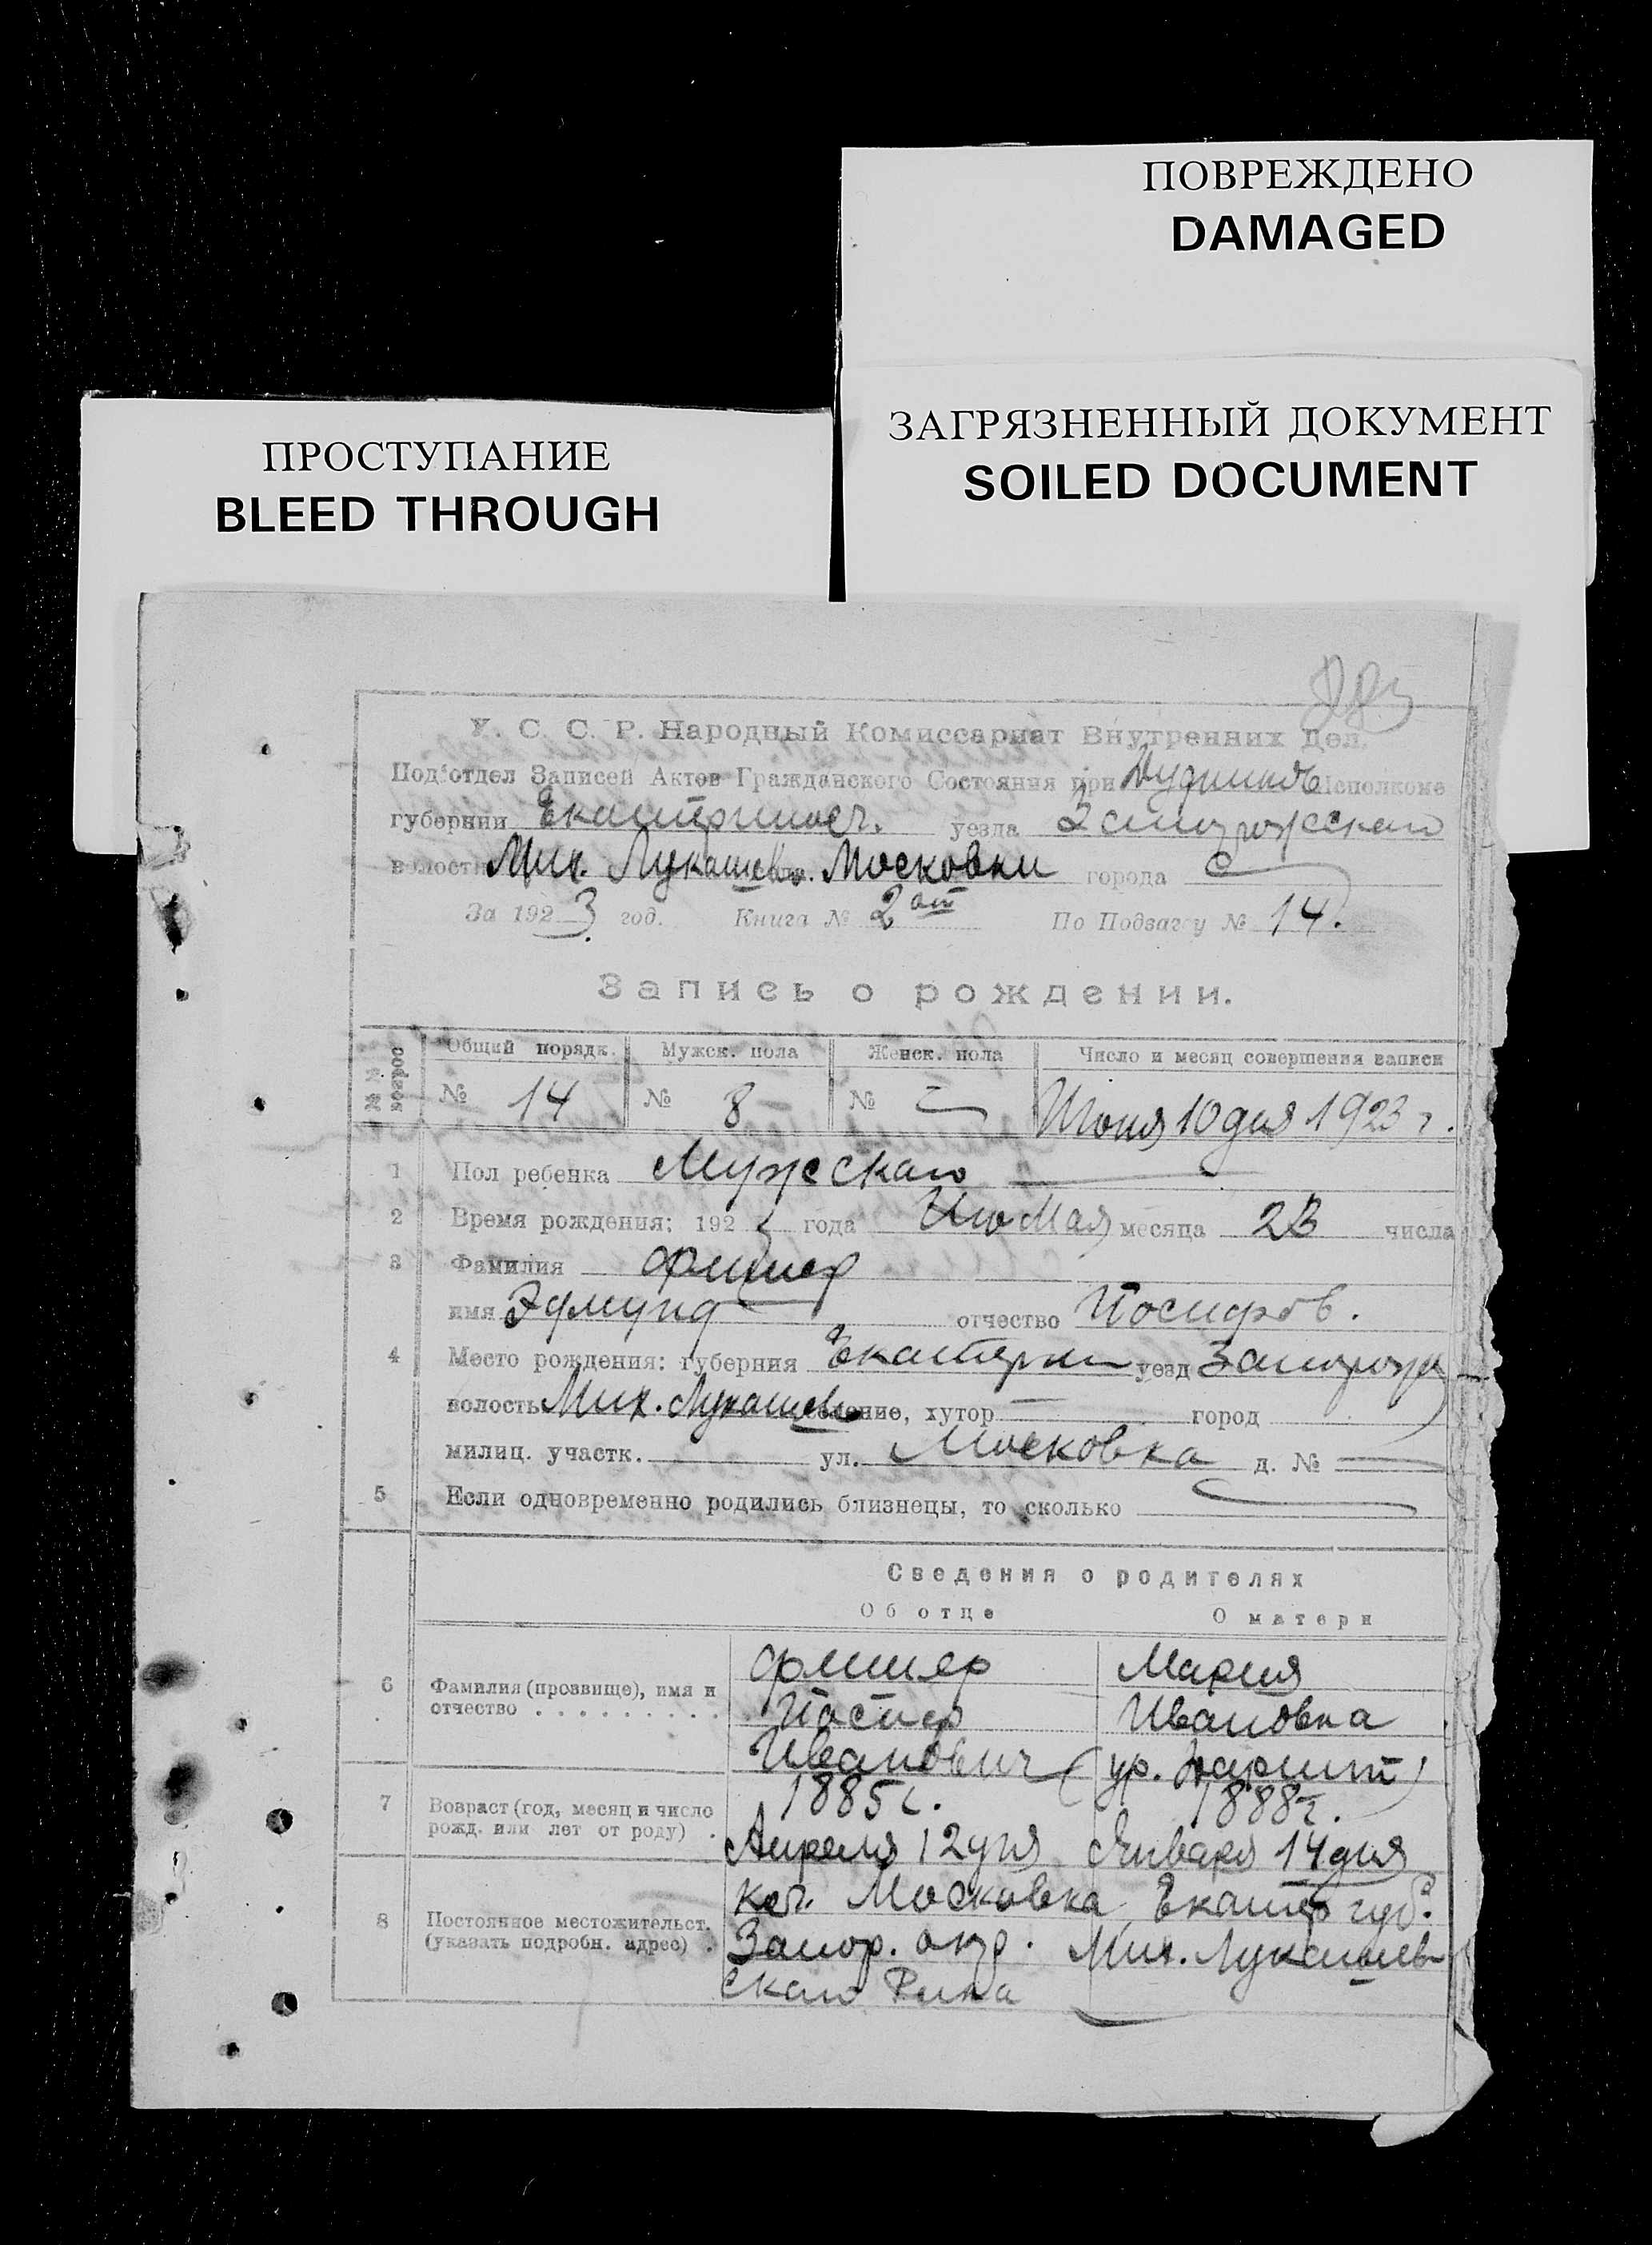 ПОВРЕЖДЕНО
DAMAGED
ЗАГРЯЗНЕННЫЙ ДОКУМЕНТ
SOILED DOCUMENT
ПРОСТУПАНИЕ
BLEED THROUGH
У. С. С. Р. Народный Комиссариат Внутренних Дел.
Под'отдел Записей Актов Гражданского Состояния при Исполкоме
губернии Екатеринос. уезда Запорожскаго
волости Мих. Лукашев. Московки города
За 1923 год. Книга № 2ая По Подзагсу № 14.
Запись о рождении.
№№ вопрос Общий порядк. Мужск. пола Женск. пола Число и месяц совершения записи
№ 14 № 8 № — Июня 10 дня 1923 г.
1 Пол ребенка Мужскаго
2 Время рождения: 1923 года Мая месяца 23 числа
3 Фамилия Фишер
имя Эдмунд отчество Иосифов.
4 Место рождения: губерния Екатерин уезд Запорож
волость Мих. Лукашев селение, хутор — город
милиц. участк. ул. Московка д. № —
5 Если одновременно родились близнецы, то сколько —
Сведения о родителях
Об отце О матери
6 Фамилия (прозвище), имя и отчество . . . . . . . . .
Фишер Мария
Иосиф Ивановна
Иванович (ур.
7 Возраст (год, месяц и число рожд. или лет от роду) .
1885 г. 1888 г.
Апреля 12 дня Января 14 дня
8 Постоянное местожительст. (указать подробн. адрес) .
Московка Екатер губ.
Запор. окр. Мих. Лукашев
скаго Рика